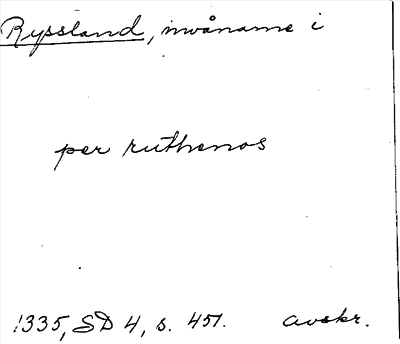 Ryssland, invånarne i
per ruthenos
1335, SD 4, s. 451. avskr.